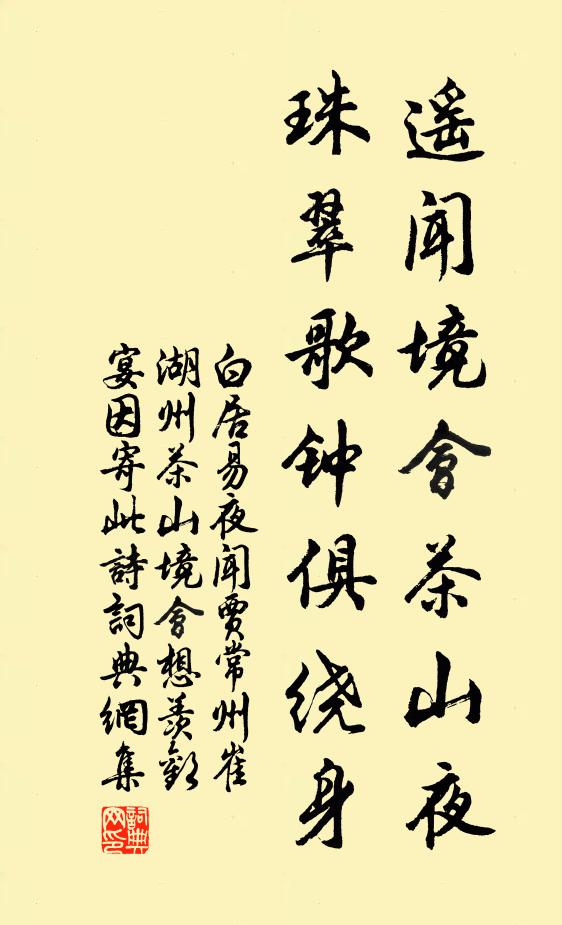 遥闻境會茶山夜
珠翠歌钟俱绕身
白居易夜闻賈常州崔
湖州茶山境會想羡歡
宴因寄此詩詞典網集
詞典网印